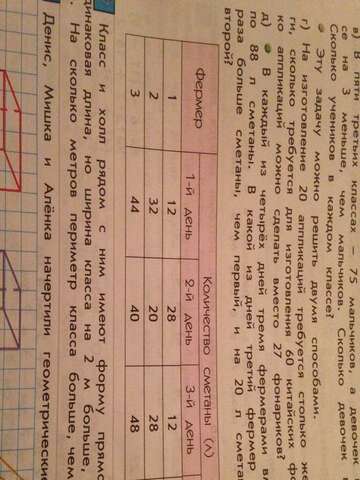 в) В пяти третьих классах – 75 мальчиков, а девочек
се на 3 меньше, чем мальчиков. Сколько девочек в
Сколько учеников в каждом классе?
Эту задачу можно решить двумя способами.
г) На изготовление 20 аппликаций требуется столько же
ги, сколько требуется для изготовления 60 китайских фо
ко аппликаций можно сделать вместо 27 фонариков?
д) каждый из четырёх дней тремя фермерами
по 88 л сметаны. В какой из дней третий фермер
раза больше сметаны, чем первый, и на 20 л смета
второй?
Фермер Количество сметаны (л)
1-й день 2-й день 3-й день
1 12 28 12
2 32 20 28
3 44 40 48
Класс и холл рядом с ним имеют форму прямо
динаковая длина, но ширина класса на 2 м больше,
На сколько метров периметр класса больше, чем
Денис, Мишка и Алёнка начертили геометрические